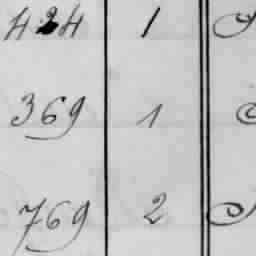 424 1
369 1
769 2